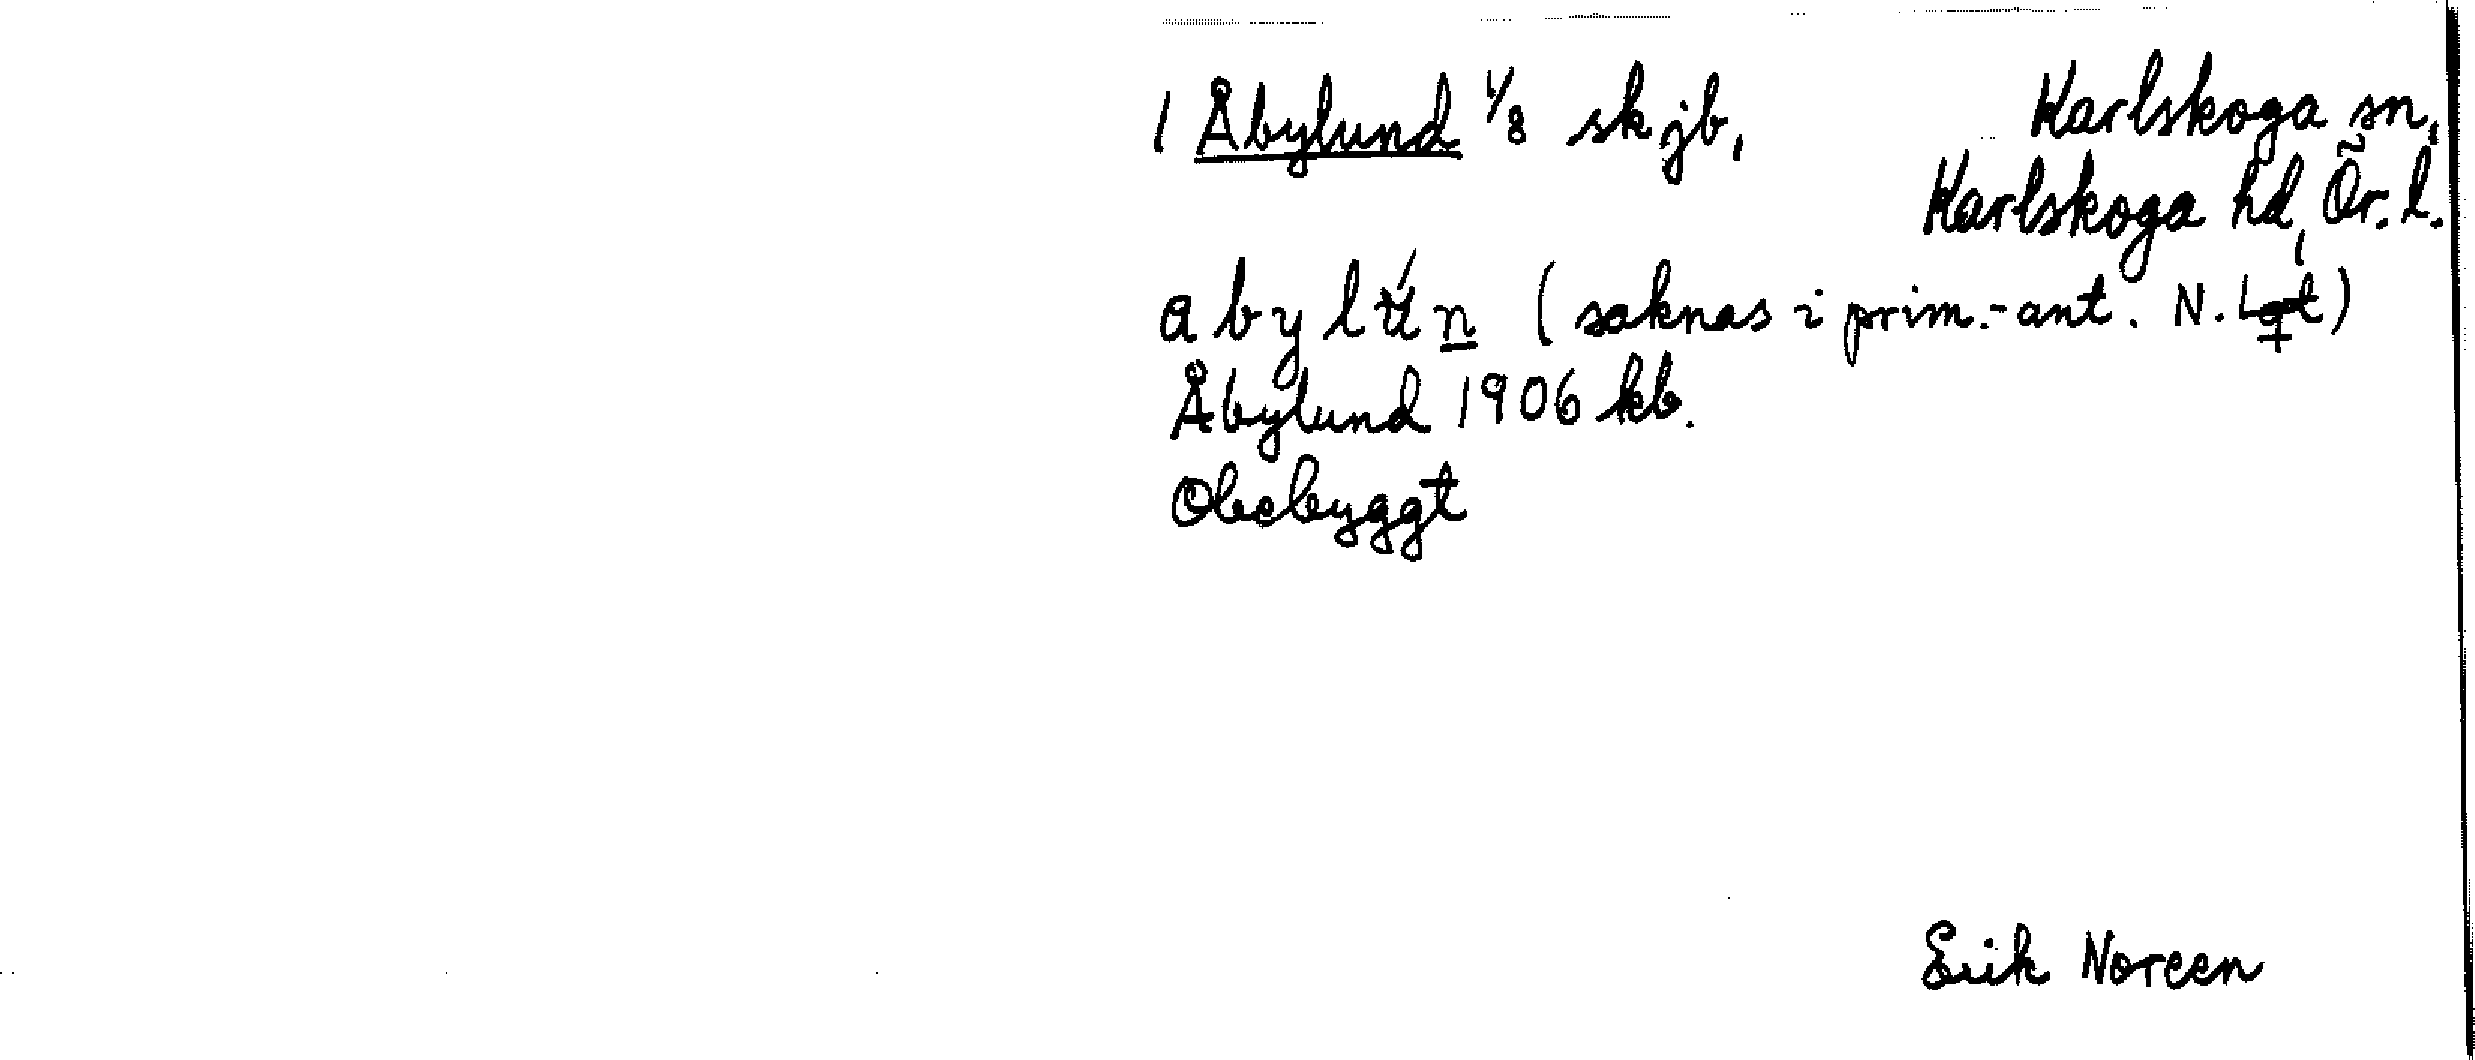 1 Åbylund 1/8 sk jb, Karlskoga sn,
Karlskoga hd, Ör. l.
a b y l ú n (saknas i prim.-ant. N. Lgt)
Åbylund 1906 kb.
Obebyggt
Erik Noreen